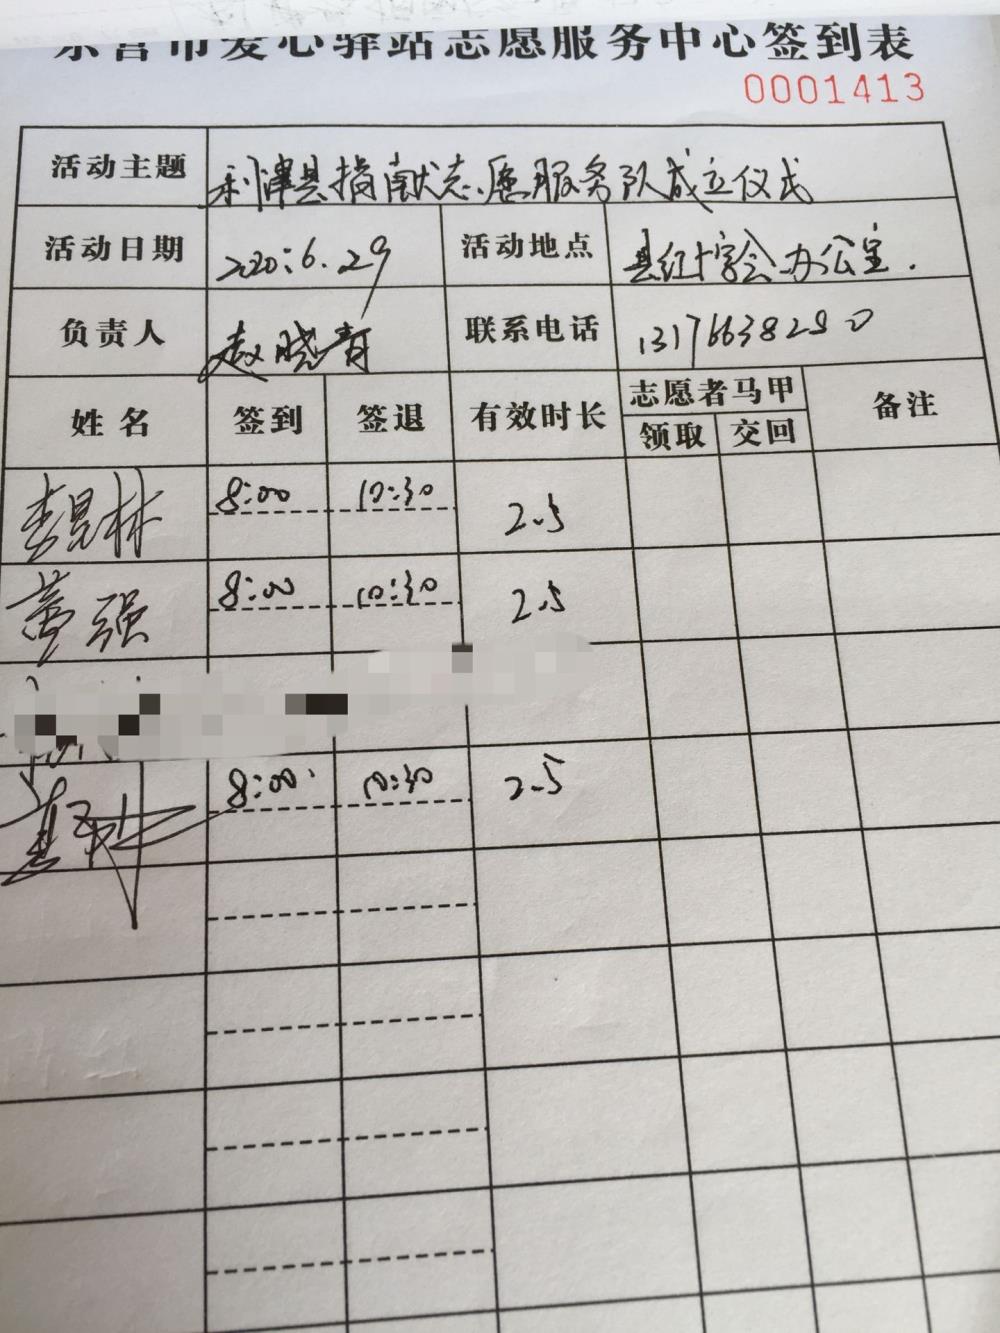 东营市爱心驿站志愿服务中心签到表
0001413
活动主题 利津县捐献志愿服务队成立仪式
活动日期 2020.6.29 活动地点 县红十字会办公室.
负责人 赵晓青 联系电话
姓名 签到 签退 有效时长 志愿者马甲 备注
领取 交回
8:00 10:30 2.5
董强 8:00 10:30 2.5
8:00 10:30 2.5